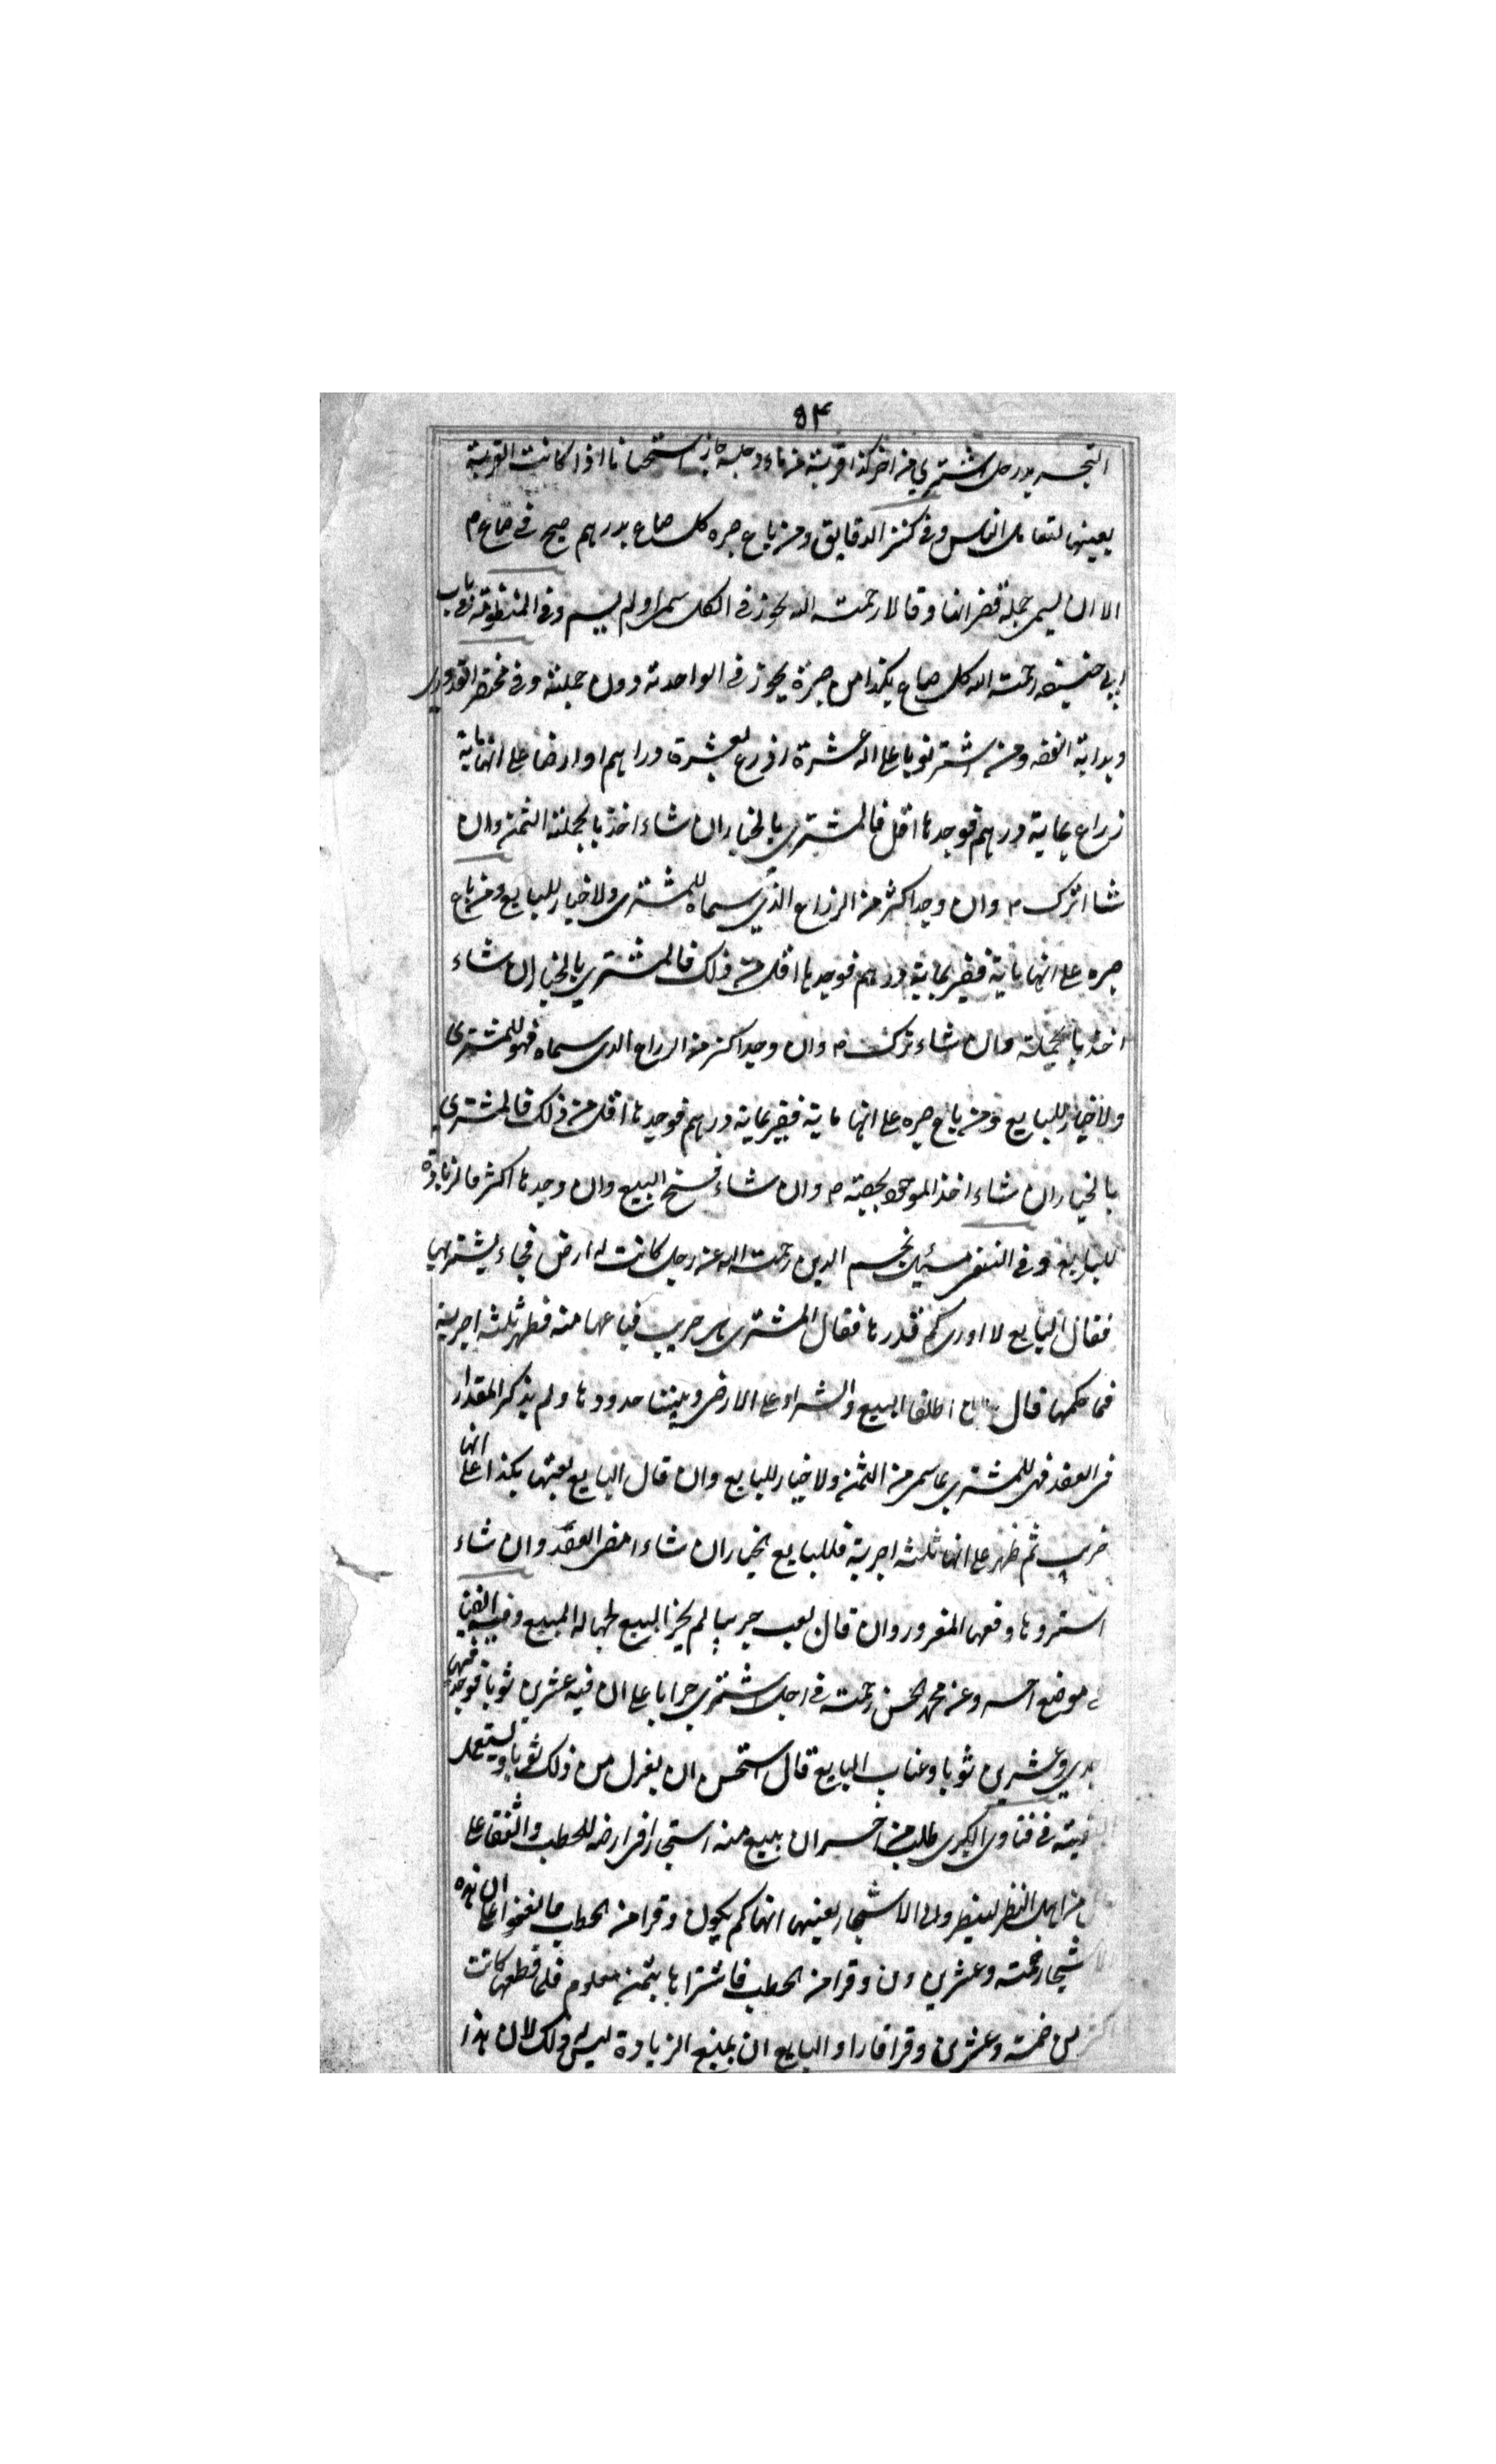 ۵۴
التجريد رجل اشتري من اخر كذا قربة من ماء دجلة جاز استحسانا اذا كانت القربة
بعينها لتعامل الناس وفي كنز الدقايق ومن باع صبره كل صاع بدرهم صح في صاع م
الا ان يسمى جملة قفزانها وقالا رحمت الله يجوز في الكل سمى او لم يسم وفي المنظومة في باب
ابي حنيفه رحمت الله كل صاع بكذا من صبرة يجوز في الواحدة دون جملته وفي مختصر القدوري
وبداية الفقه ومن اشتر ثوبا على انه عشرة اذرع بعشرة دراهم او ارضا على انها ماية
ذراع بماية درهم فوجدها اقل فالمشتري بالخيار ان شاء اخذ بالجملته الثمن وان
شاء ترك م وان وجد اكثر من الذراع الذي سماه للمشتري ولا خيار للبايع ومن باع
صبره على انها ماية قفيز بماية درهم فوجدها اقل من ذلك فالمشتري بالخيار ان شاء
اخذ بالجملته وان شاء ترك م وان وجد اكثر من الذراع الذي سماه فهو للمشتري
ولا خيار للبايع ومن باع صبره على انها ماية قفيز بماية درهم فوجدها اقل من ذلك فالمشتري
بالخيار ان شاء اخذ الموجود بحصته م وان شاء فسخ البيع وان وجدها اكثر فالزيادة
للبايع وفي النسفي سئيل نجم الدين رحمت الله عن رجل كانت له ارض فجاء يشتريها
فقال البايع لا ادري كم قدرها فقال المشتري جريب فباعها منه فظهر ثلثه اجربة
فما حكمها قال ان اطلقا البيع والشراء على الارض وبينتا حدودها ولم يذكر المقدار
في العقد فهي للمشتري بما سمى من الثمن ولا خيار للبايع وان قال البايع بعتها بكذا على انها
جريب ثم ظهر على انها ثلثه اجربة فللبايع الخيار ان شاء امضى العقد وان شاء
استردها المغرور وان قال جريبا لم يجز البيع لجهالة المبيع وفيه ايضا
في موضع اخر وعن محمد الحسن رحمت في رجل اشتري جرابا على ان فيه عشرين ثوبا فوجد فيها
احدي وعشرين ثوبا وغاب البايع قال استحسن ان يعزل من ذلك ثوبا ويستعمل
البقية في فتاوى الكبرى طلب من اخر ان يبيع منه اشجارا في ارضه للحطب واتفقا على
من اهل النظر لينظروا الى الاشجار بعينها انها كم يكون وقرا من الحطب فاتفقوا على ان هذه
الاشجار خمسة وعشرين وقرا من الحطب فاشتراها بثمن معلوم فلما قطعها كانت
اكثر من خمسة وعشرين وقرا فاراد البايع ان يمنع الزيادة ليس له ذلك لان هذا